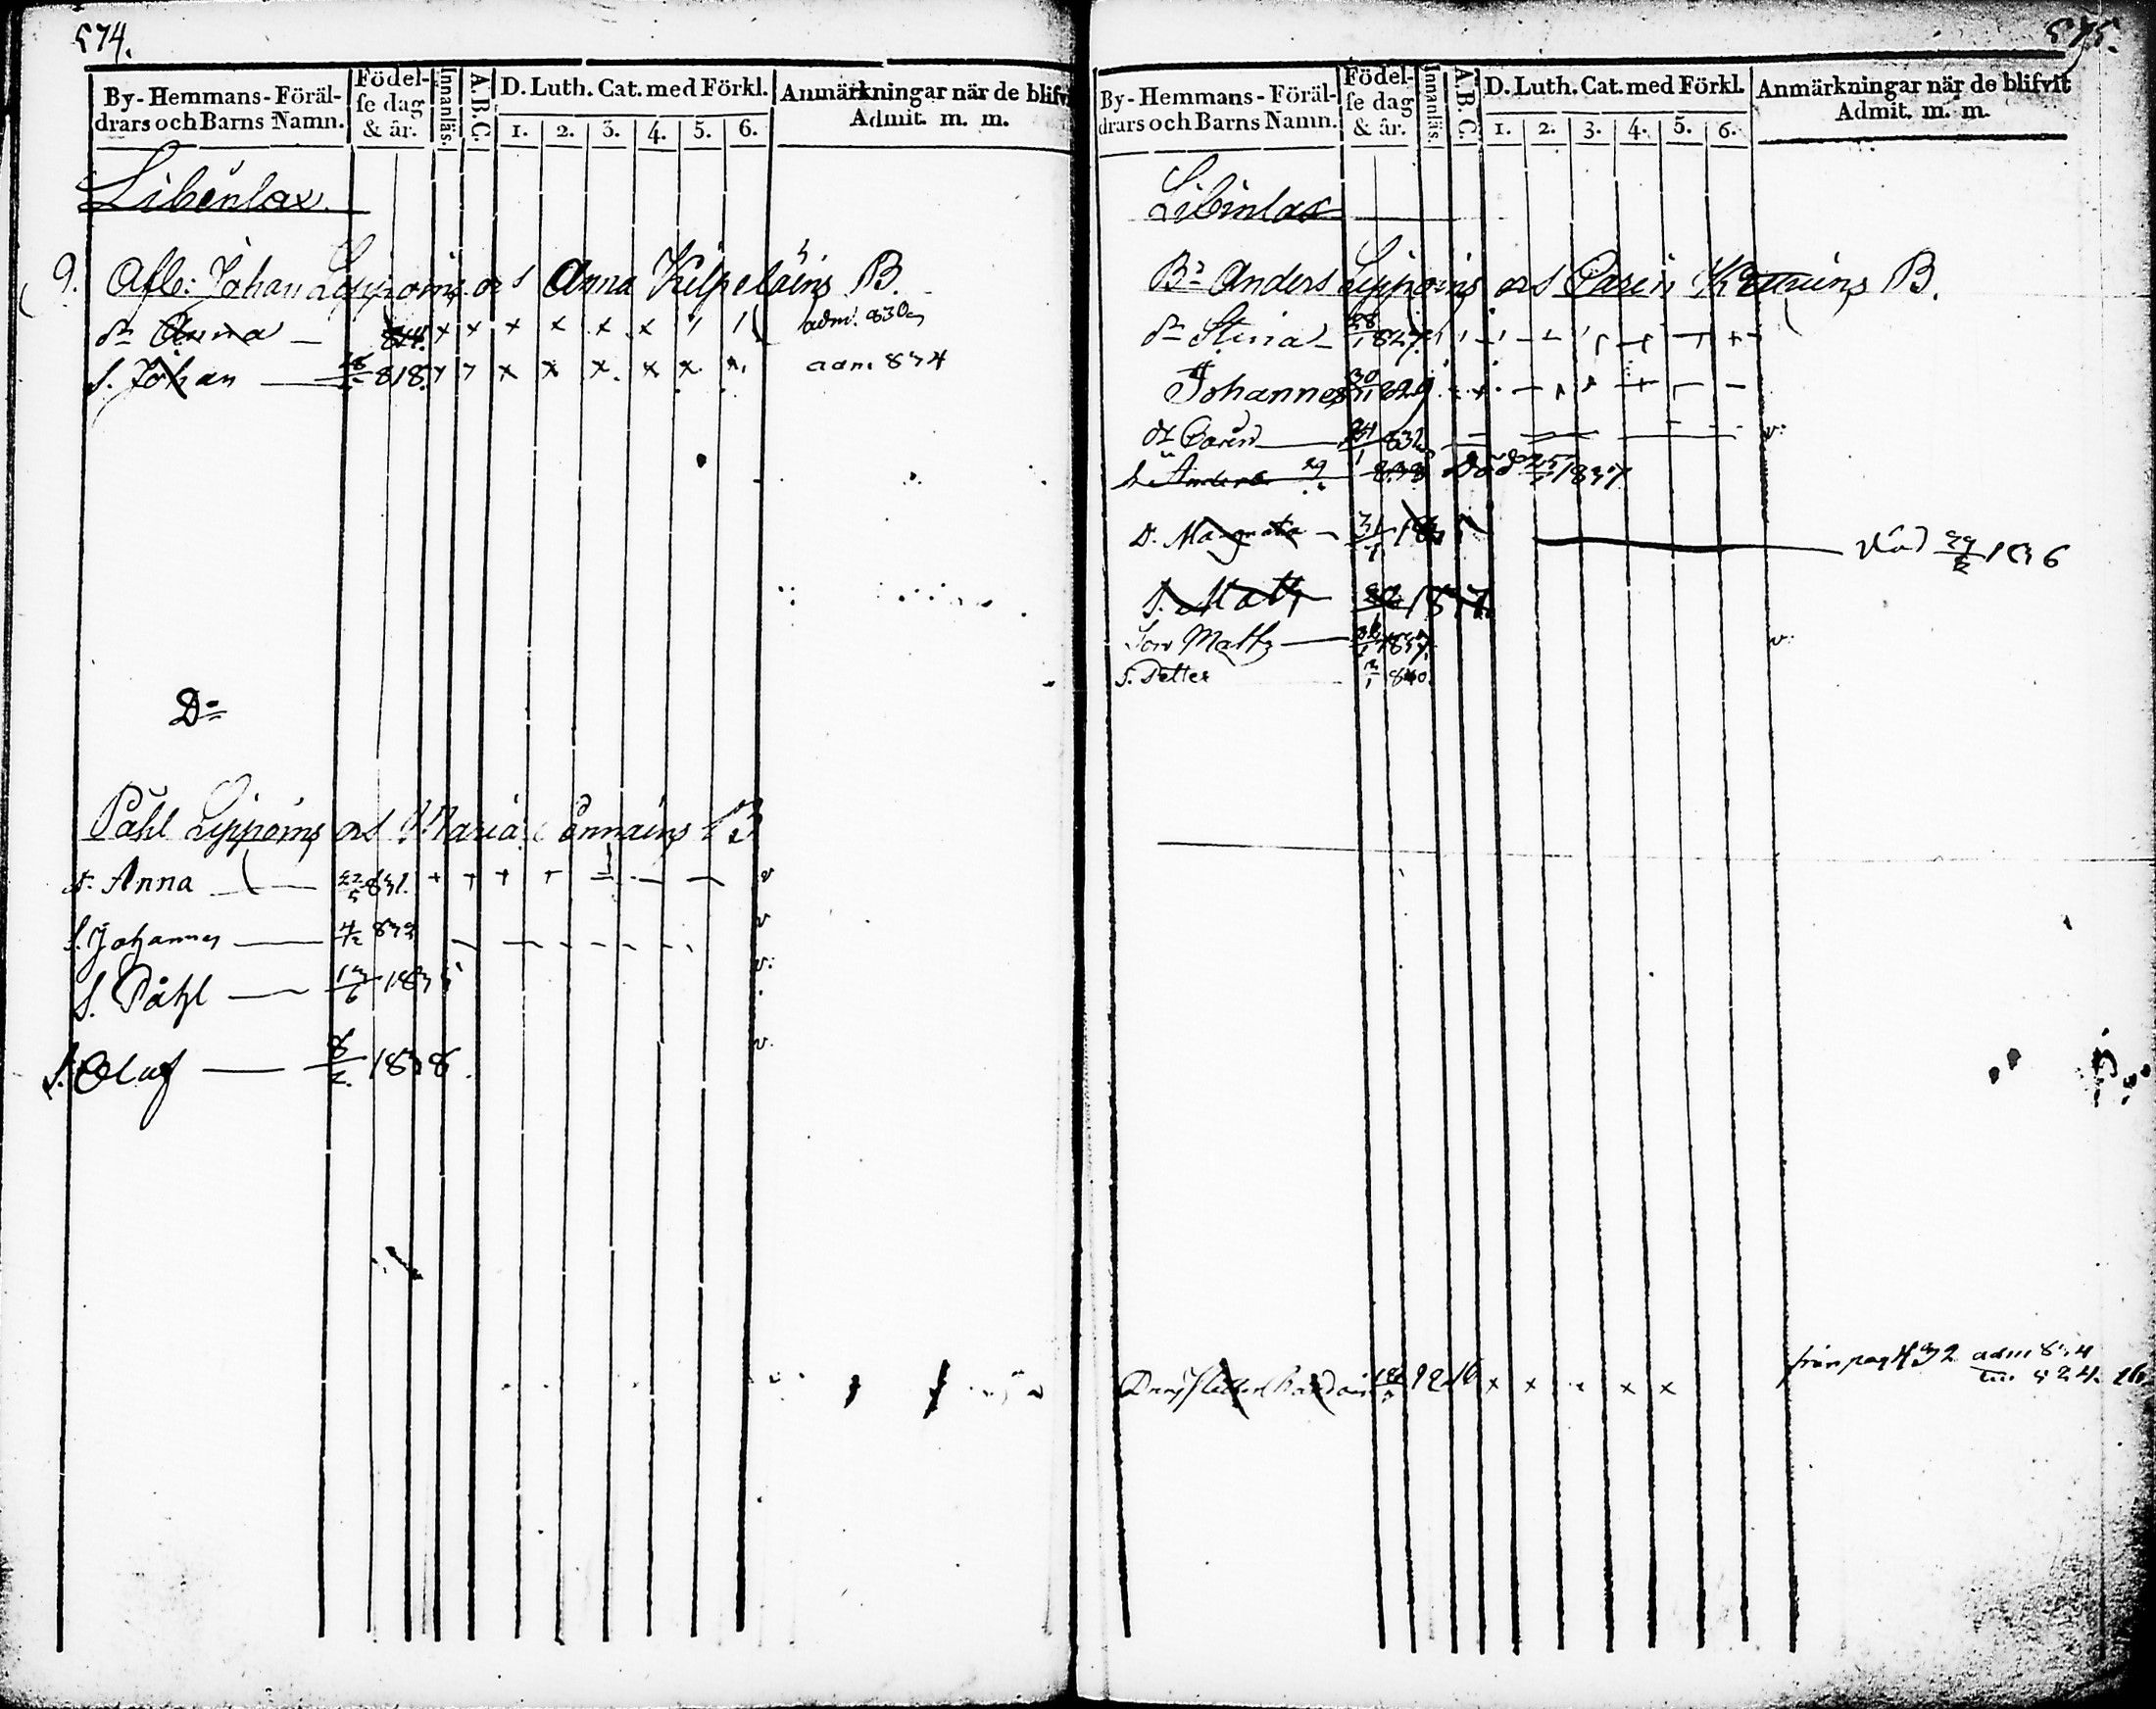 574.
By-Hemmans-Föräl-
drars och Barns Namn.
Födel-
se dag
& år.
Innanläs.
A.B.C.
D. Luth. Cat. med Förkl.
1. 2. 3. 4. 5. 6.
Anmärkningar när de blifv
Admit. m. m.
Libenlax
9. Afl: Johan Lippoins och Anna Kilpeläins B.
dr Anna 814. x x x x x x adm. 830
S. Johan 818. x x x x x x adm 834
Do
Påhl Lippoins och Maria B
dr Anna 22/5 831. + + + + v
S. Johannes 4/12 832 v
S. Påhl 13/6 1835 v.
S. Oluf 8/2 1838 v.
575.
By-Hemmans-Föräl-
drars och Barns Namn.
Födel-
se dag
& år.
Innanläs.
A.B.C.
D. Luth. Cat. med Förkl.
1. 2. 3. 4. 5. 6.
Anmärkningar när de blifvit
Admit. m. m.
Libenlax
Br Anders Lippoins och Carin B.
dr Stina 28/1 827
Johannes 30/11 829
dr Carin 24/1 832 v:
S. Anders Död 1837
D. Margreta 31/7 Död 29/2 1836
S. Matts 1837.
Son Matts 1837. v:
S. Petter 3/1 840.
x x x x från pag 432 adm 834